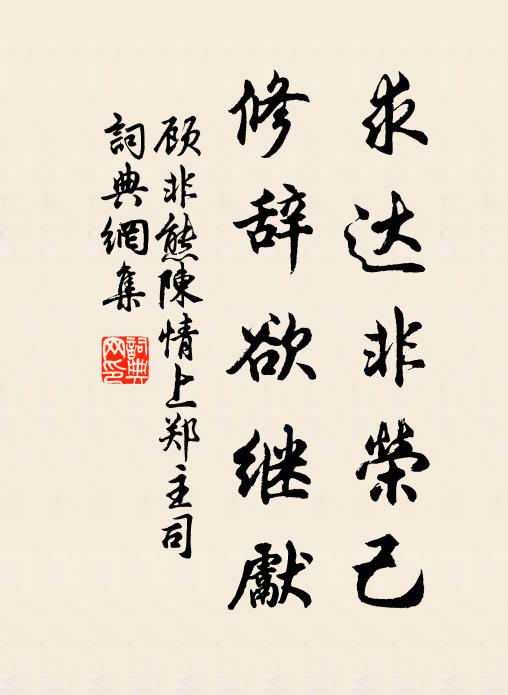 求达非荣己
修辞欲继献
顾非熊陳情上郑主司
詞典網集
詞典网印